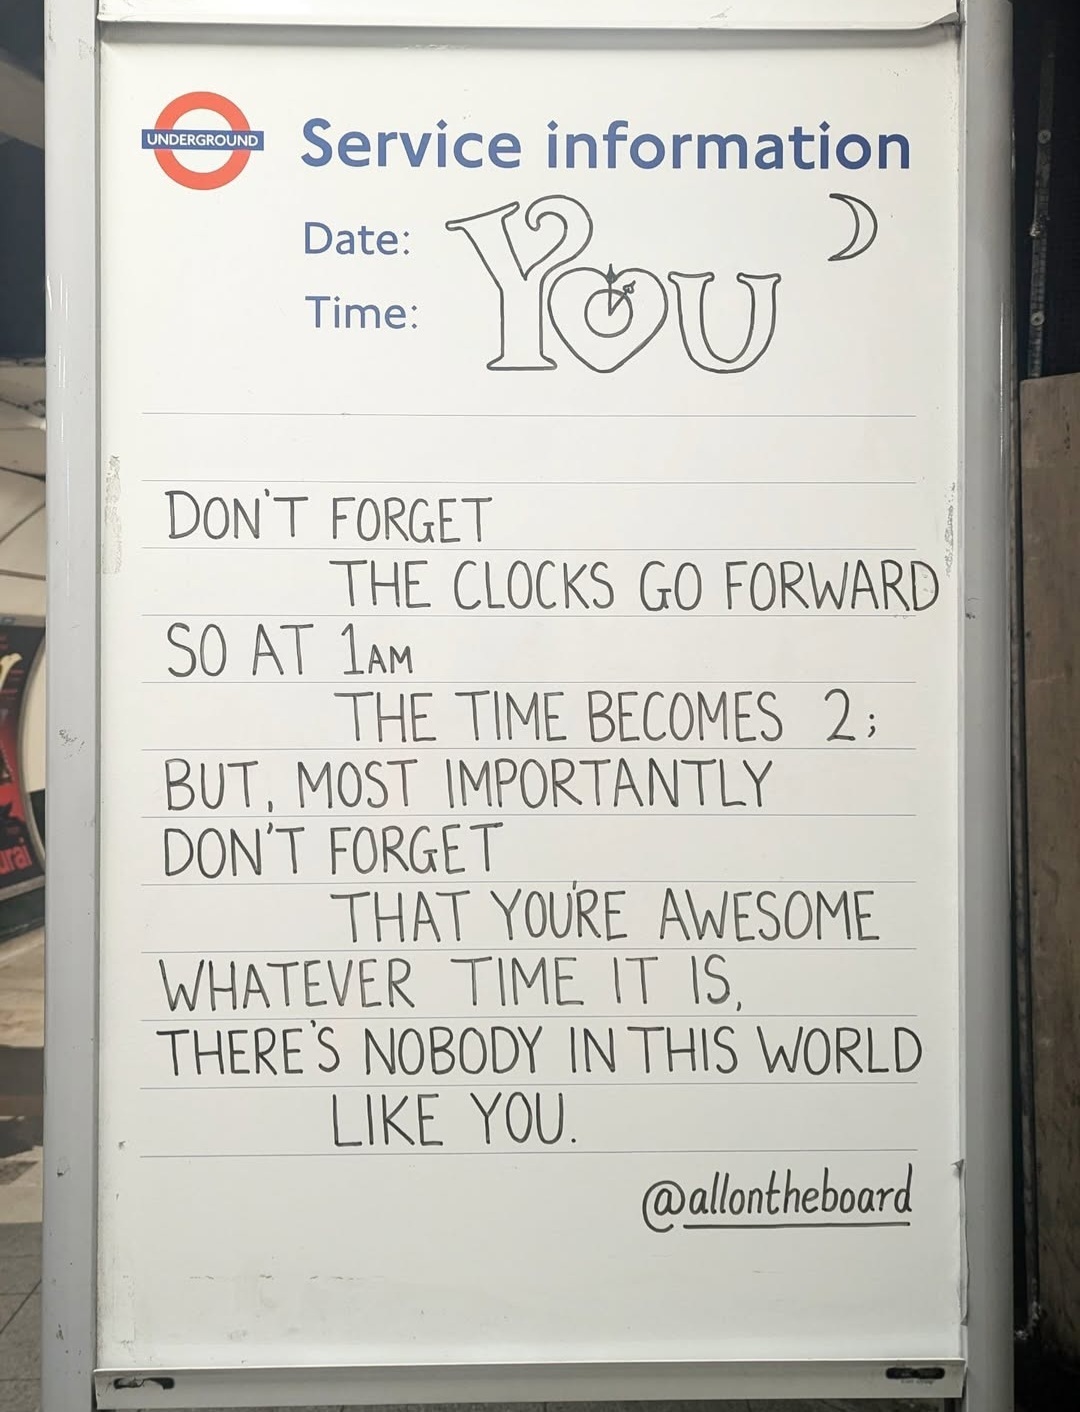 UNDERGROUND
Service information
Date:
Time:
YOU
DON'T FORGET
THE CLOCKS GO FORWARD
SO AT 1AM
THE TIME BECOMES 2;
BUT, MOST IMPORTANTLY
DON'T FORGET
THAT YOU'RE AWESOME
WHATEVER TIME IT IS,
THERE'S NOBODY IN THIS WORLD
LIKE YOU.
@allontheboard
urai